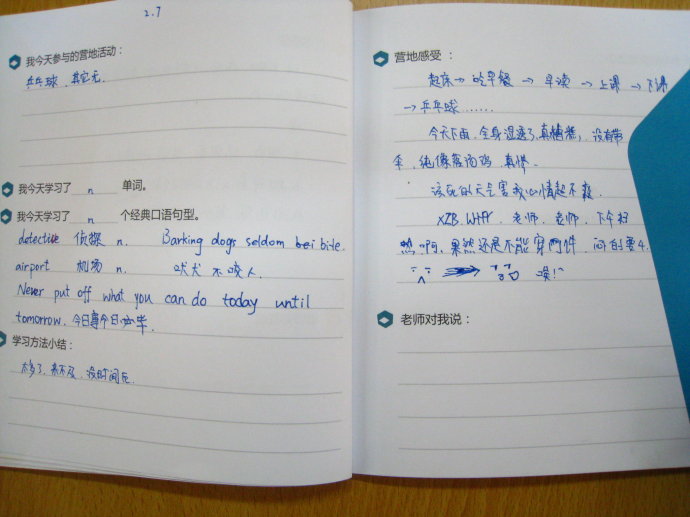 2.7
我今天参与的营地活动：
乒乓球，其它无．
我今天学习了 n 单词。
我今天学习了 n 个经典口语句型。
detective 侦探 n. Barking dogs seldom bite.
airport 机场 n. 吠犬不咬人．
Never put off what you can do today until
tomorrow. 今日事今日毕．
学习方法小结：
太多了，来不及，没时间
营地感受：
起床→吃早餐→早读→上课→下课
→乒乓球……
今天下雨，全身湿透了，真糟糕，没有带
伞，纯像落汤鸡，真惨．
该死的天气害我心情超不爽
XZB. WHY 老师，老师，下午
热啊，果然还是不能穿两件，闷的要
老师对我说：